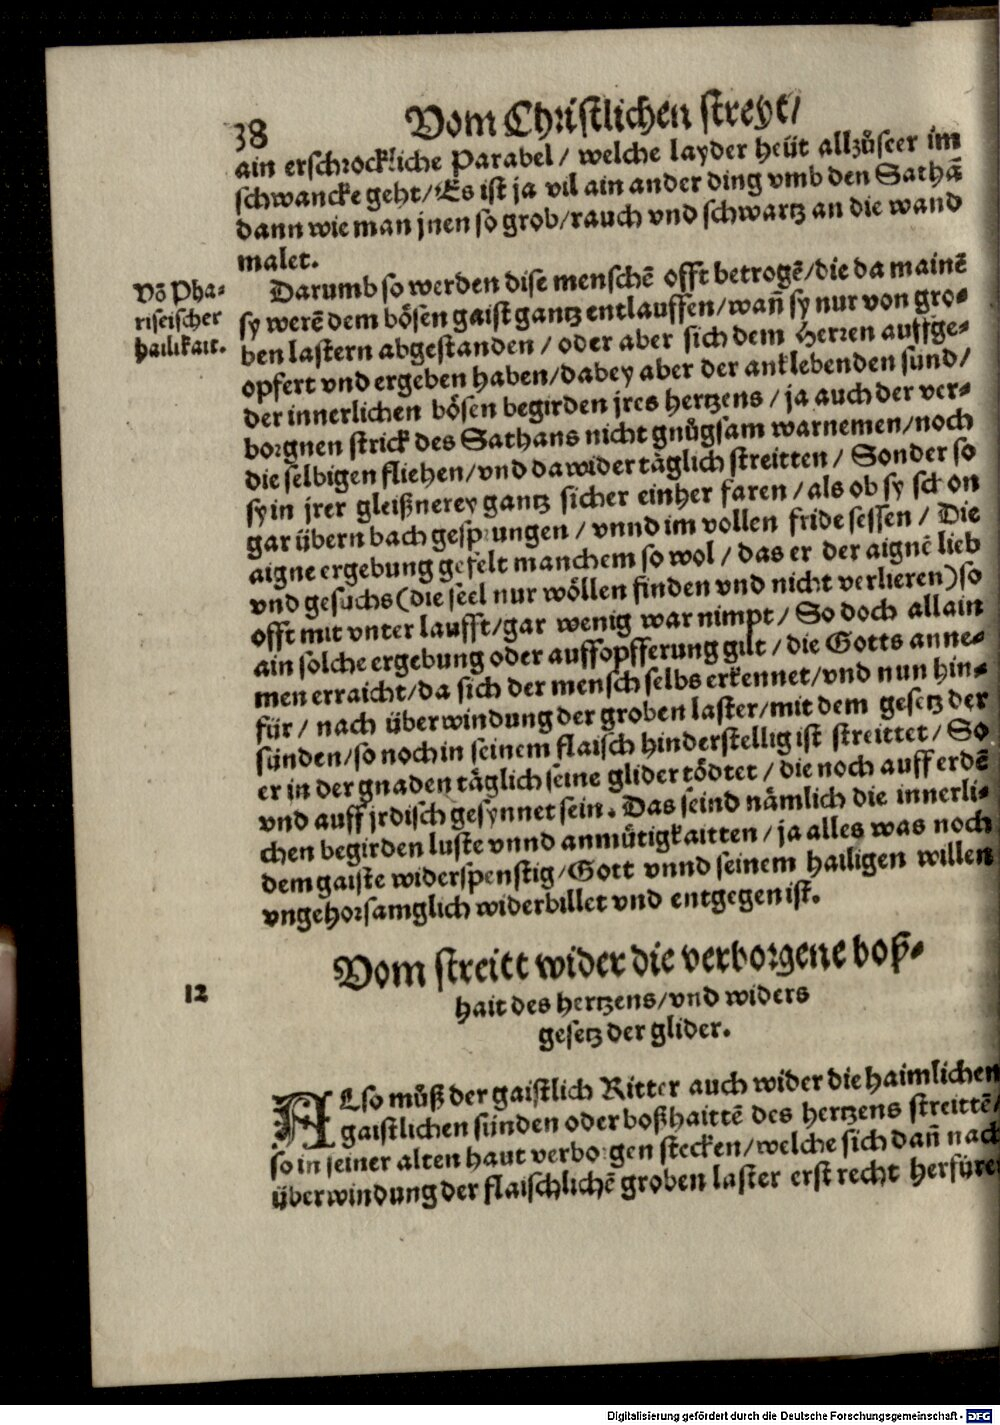 38
Vom Christlichen streyt/
ain erschrockliche Parabel / welche layder heüt allzůseer im
schwancke geht/ Es ist ja vil ain ander ding vmb den Sathā
dann wie man jnen so grob/rauch vnd schwartz an die wand
malet.
Vō Pha⸗
riseischer
hailikait.
Darumb so werden dise menschē offt betrogē/die da mainē
sy werē dem bösen gaist gantz entlauffen/wañ sy nur von gro⸗
ben lastern abgestanden / oder aber sich dem Herren auffge⸗
opfert vnd ergeben haben/dabey aber der anklebenden sünd/
der innerlichen bösen begirden jres hertzens / ja auch der ver⸗
borgnen strick des Sathans nicht gnůgsam warnemen/noch
die selbigen fliehen/vnd dawider täglich streitten / Sonder so
sy in jrer gleißnerey gantz sicher einher faren / als ob sy schon
gar übern bach gesprungen / vnnd im vollen fride sessen / Die
aigne ergebung gefelt manchem so wol / das er der aignē lieb
vnd gesuchs (die seel nur wöllen finden vnd nicht verlieren) so
offt mit vnter laufft/gar wenig war nimpt / So doch allain
ain solche ergebung oder auffopfferung gilt / die Gotts anne⸗
men erraicht/da sich der mensch selbs erkennet/vnd nun hin⸗
für / nach überwindung der groben laster/mit dem gesetz der
sünden/so noch in seinem flaisch hinderstellig ist streittet / So
er in der gnaden täglich seine glider tödtet / die noch auff erdē
vnd auff jrdisch gesynnet sein. Das seind nämlich die innerli⸗
chen begirden luste vnnd anmůtigkaitten / ja alles was noch
dem gaiste widerspenstig/Gott vnnd seinem hailigen willen
vngehorsamglich widerbillet vnd entgegen ist.
Vom streitt wider die verborgene boß⸗
12
hait des hertzens/vnd widers
gesetz der glider.
ALso můß der gaistlich Ritter auch wider die haimlichen
gaistlichen sünden oder boßhaittē des hertzens streittē/
so in seiner alten haut verborgen stecken/welche sich dañ nach
überwindung der flaischlichē groben laster erst recht herfüre
Digitalisierung gefördert durch die Deutsche Forschungsgemeinschaft - DFG